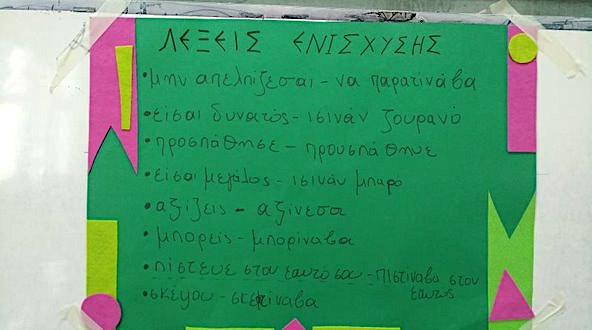 ΛΕΞΕΙΣ ΕΝΙΣΧΥΣΗΣ
•μην απελπίζεσαι - να παρατινάβα
•είσαι δυνατός - ισινάν ζουρανό
•προσπάθησε - προυσπάθηνε
•είσαι μεγάλος - ισινάν μπαρο
•αξίζεις - αξίνεσα
•μπορείς - μπορίναβα
•πίστευε στον εαυτό σου - πιστίναβα στον
εαυτός
•σκέψου - σκεπτίναβα